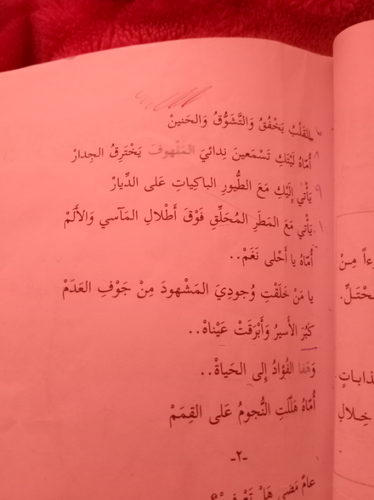 القَلْبُ يَخْفُقُ وَالتَّشَوُّقُ وَالحَنينْ
أُمّاهُ لَيْتَكِ تَسْمَعينَ نِدائيَ المَلْهوفَ يَخْتَرِقُ الجِدارْ
٩ يَأْتي إِلَيْكِ مَعَ الطُّيورِ الباكِياتِ عَلى الدِّيارْ
يَأْتي مَعَ المَطَرِ المُحَلِّقِ فَوْقَ أَطْلالِ المَآسي وَالأَلَمْ
أُمّاهُ يا أَحْلى نَغَمْ..
يا مَنْ خَلَقْتِ وُجودِيَ المَشْهودَ مِنْ جَوْفِ العَدَمْ
كَبُرَ الأَسيرُ وَأَبْرَقَتْ عَيْناهْ..
وَهَفا الفُؤادُ إِلى الحَياةْ..
أُمّاهُ هَلَّلَتِ النُّجومُ عَلى القِمَمْ
-٢-
عامٌ مَضى هَلْ
ءاً مِنْ
حْتَلِّ.
ذاباتِ
خِلالِ